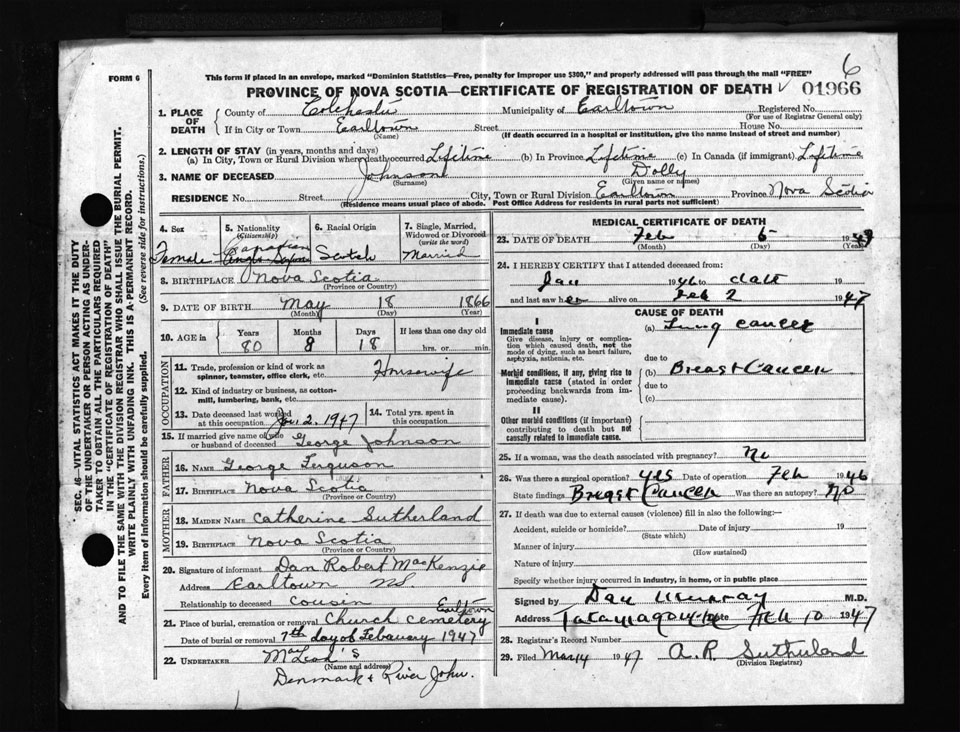 6
FORM 6
This form if placed in an envelope, marked "Dominion Statistics—Free, penalty for improper use $300," and properly addressed will pass through the mail "FREE"
PROVINCE OF NOVA SCOTIA—CERTIFICATE OF REGISTRATION OF DEATH ✓ 01966
1. PLACE OF DEATH { County of Colchester Municipality of Earltown Registered No.
(For use of Registrar General only)
If in City or Town Earltown Street House No.
(Name) (If death occurred in a hospital or institution, give the name instead of street and number)
2. LENGTH OF STAY (in years, months and days)
(a) In City, Town or Rural Division where death occurred Lifetime (b) In Province Lifetime (c) In Canada (if immigrant) Lifetime
3. NAME OF DECEASED Johnson Dolly
(Surname) (Given name or names)
RESIDENCE No. Street City, Town or Rural Division Earltown Province Nova Scotia
(Residence means usual place of abode. Post Office Address for residents in rural parts not sufficient)
4. Sex 5. Nationality (Citizenship) 6. Racial Origin 7. Single, Married, Widowed or Divorced (write the word)
Female Canadian Scotch Married
8. BIRTHPLACE Nova Scotia
(Province or Country)
9. DATE OF BIRTH May 18 1866
(Month) (Day) (Year)
10. AGE in { Years Months Days If less than one day old
80 8 18 hrs. or min.
OCCUPATION
11. Trade, profession or kind of work as spinner, teamster, office clerk, etc. Housewife
12. Kind of industry or business, as cotton-mill, lumbering, bank, etc.
13. Date deceased last worked at this occupation Jan. 2. 1947 14. Total yrs. spent in this occupation
15. If married give name of wife or husband of deceased George Johnson
FATHER
16. NAME George Ferguson
17. BIRTHPLACE Nova Scotia
(Province or Country)
MOTHER
18. MAIDEN NAME Catherine Sutherland
19. BIRTHPLACE Nova Scotia
(Province or Country)
20. Signature of informant Dan Robert MacKenzie
Address Earltown N.S.
Relationship to deceased cousin
21. Place of burial, cremation or removal Church cemetery Earltown
Date of burial or removal 7th day of Febauary 1947
22. UNDERTAKER MacLeod's
(Name and address)
Denmark & River John.
MEDICAL CERTIFICATE OF DEATH
23. DATE OF DEATH Feb 5 1947
(Month) (Day) (Year)
24. I HEREBY CERTIFY that I attended deceased from:
Jan 1946 to date 19
and last saw her alive on Feb 2 1947
CAUSE OF DEATH
I
Immediate cause (a) Lung cancer
Give disease, injury or complication which caused death, not the mode of dying, such as heart failure, asphyxia, asthenia, etc.
due to
Morbid conditions, if any, giving rise to immediate cause (stated in order proceeding backwards from immediate cause). (b) Breast Cancer
due to
(c)
II
Other morbid conditions (if important) contributing to death but not causally related to immediate cause.
25. If a woman, was the death associated with pregnancy? No
26. Was there a surgical operation? yes Date of operation Feb 1946
State findings Breast Cancer Was there an autopsy? No
27. If death was due to external causes (violence) fill in also the following:—
Accident, suicide or homicide? Date of injury 19
(State which)
Manner of injury
(How sustained)
Nature of injury
Specify whether injury occurred in industry, in home, or in public place
Signed by Dan Murray M.D.
Address Tatamagouche Date Feb 10 1947
28. Registrar's Record Number
29. Filed Mar 14 1947 A. R. Sutherland
(Division Registrar)
SEC. 46—VITAL STATISTICS ACT MAKES IT THE DUTY
OF THE UNDERTAKER OR PERSON ACTING AS UNDER-
TAKER TO OBTAIN ALL THE PARTICULARS REQUIRED
IN THE "CERTIFICATE OF REGISTRATION OF DEATH"
AND TO FILE THE SAME WITH THE DIVISION REGISTRAR WHO SHALL ISSUE THE BURIAL PERMIT.
WRITE PLAINLY WITH UNFADING INK. THIS IS A PERMANENT RECORD.
Every item of information should be carefully supplied. (See reverse side for instructions.)